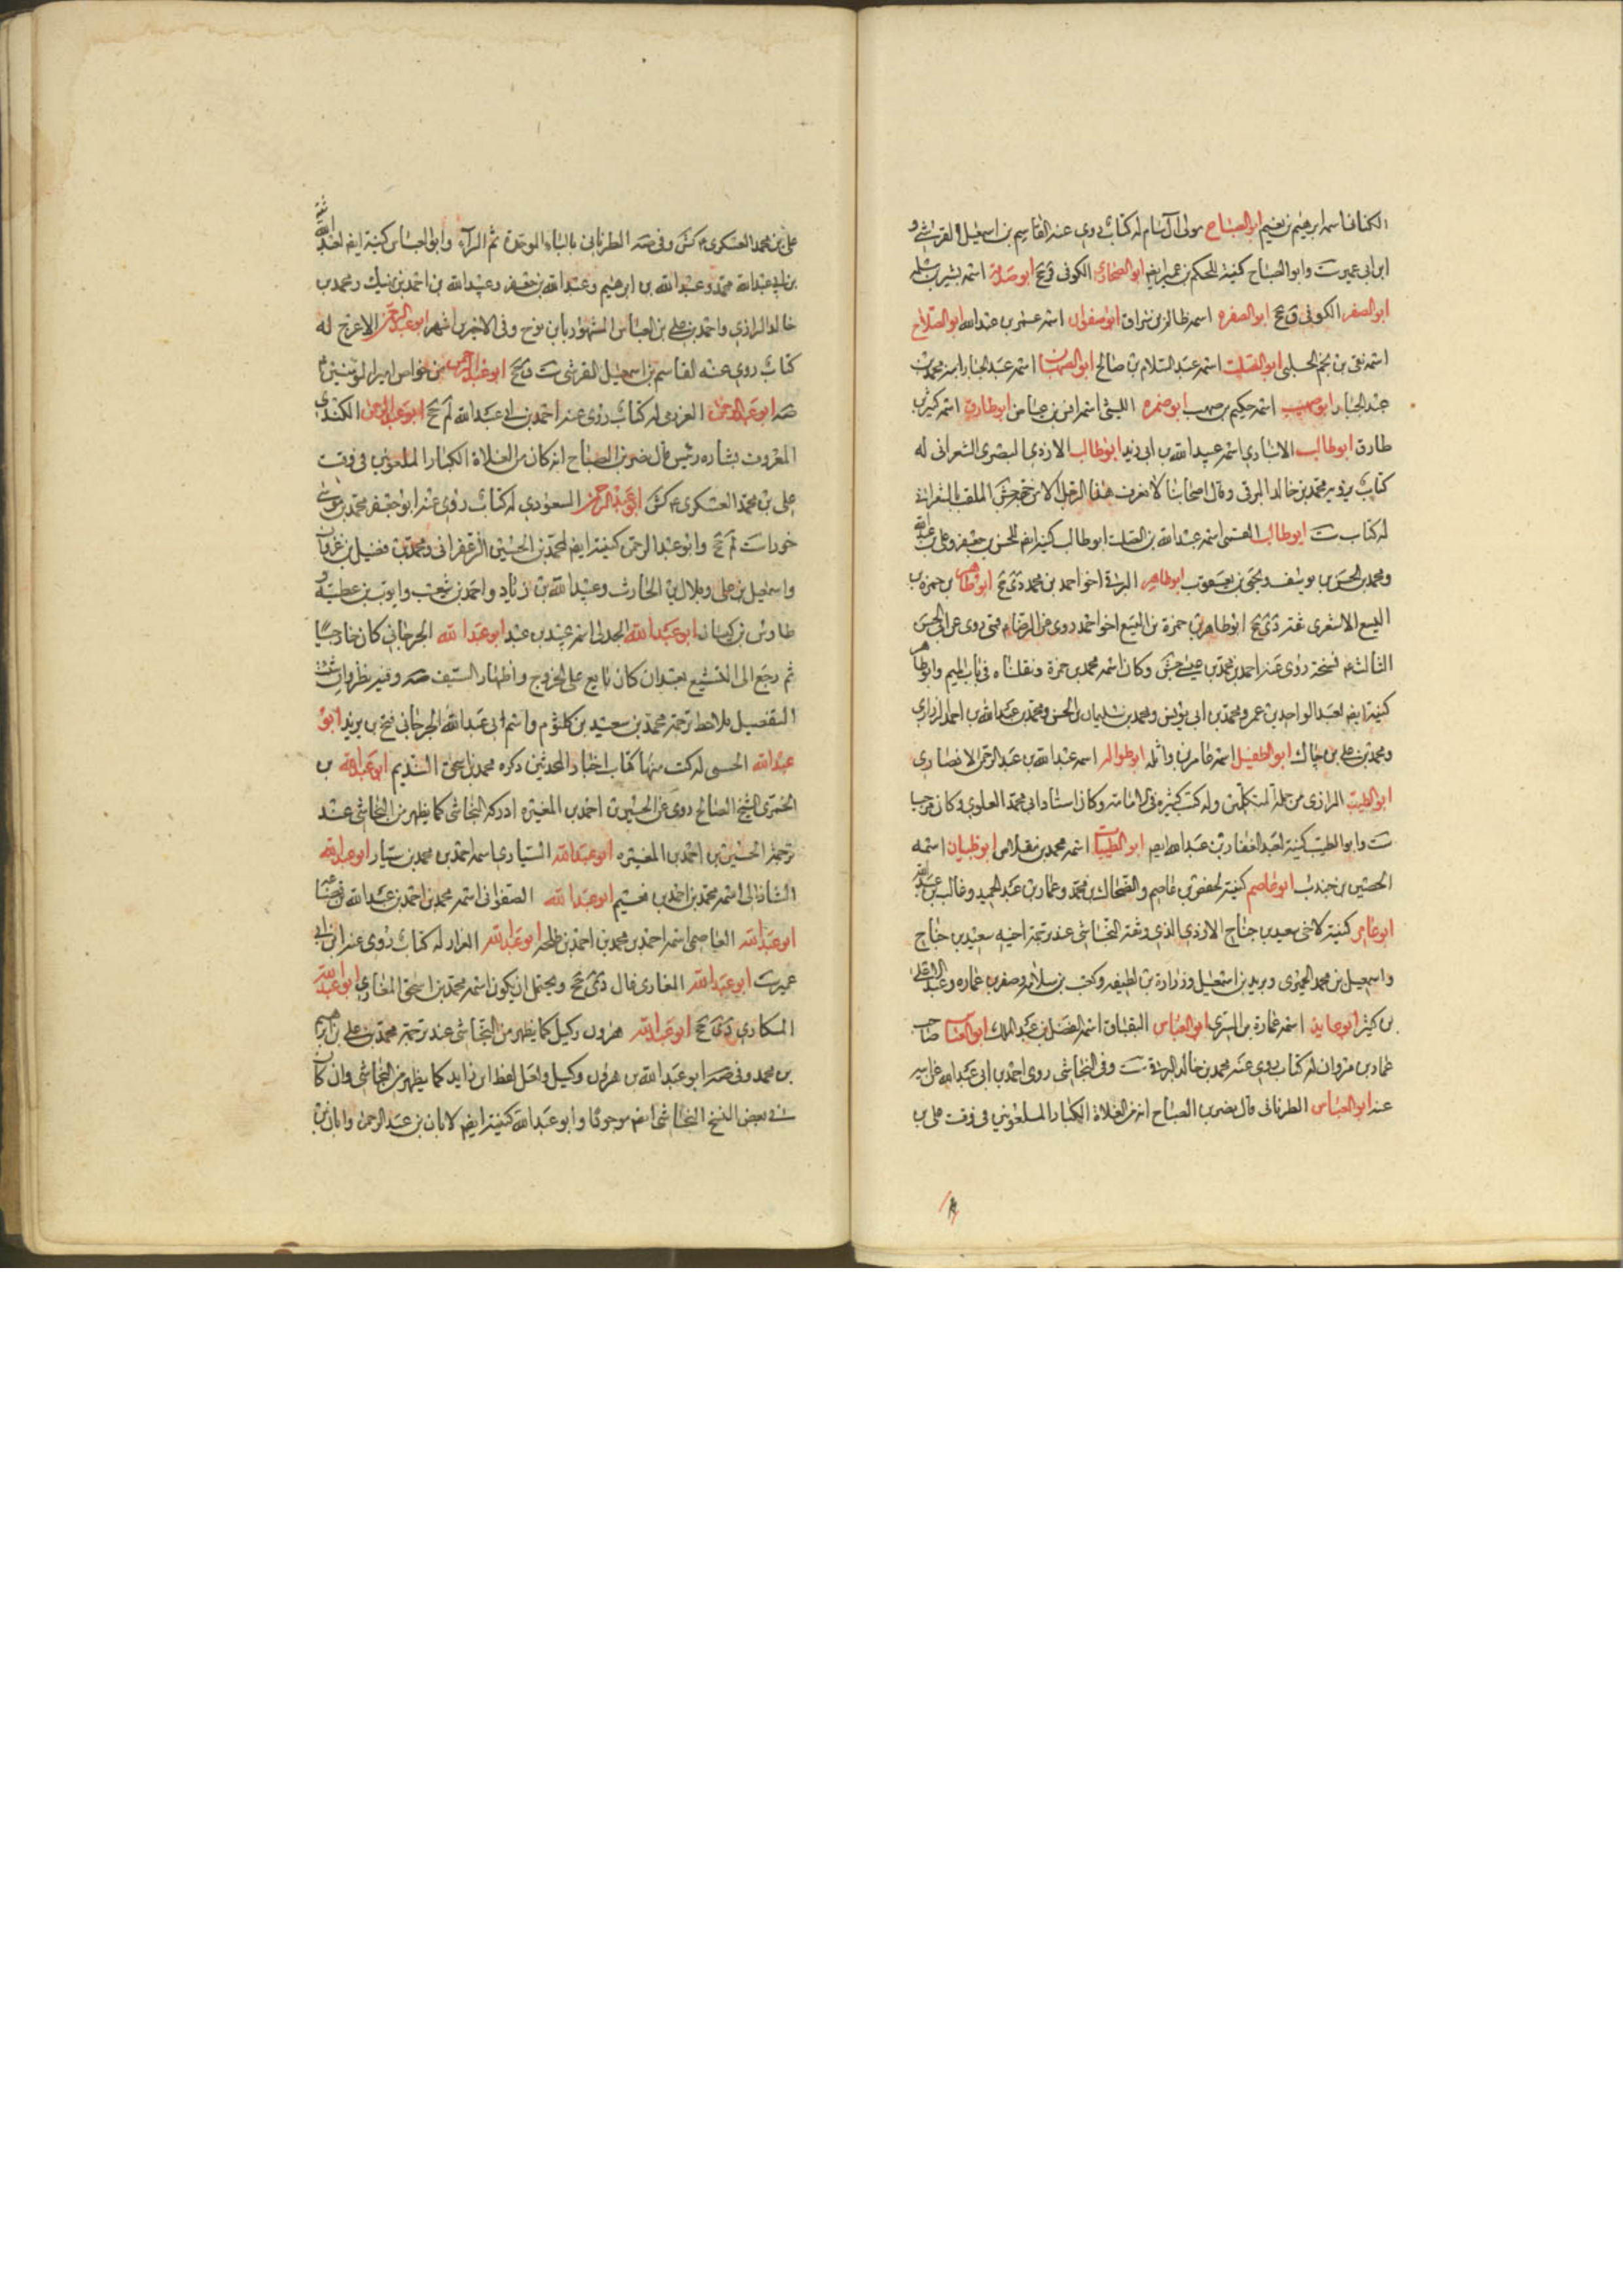 الكنانى اسمه ابرهيم بن نعيم ابو الصباح مولى آل سام له كتاب روى عنه القاسم بن اسمعيل القرشى و
ابن ابى عمير ست وابو الصباح كنية للحكم بن عمير ايضا ابو الصحارى الكوفى ق جخ ابو صدقة اسمه بشر بن مسلمة
ابو الصفر الكوفى ق جخ ابو الصفره اسمه ظالم بن سراق ابو صفوان اسمه عبد الله ابو الصلاح
اسمه تقى بن نجم الحلبى ابو الصلت اسمه عبد السلام بن صالح ابو الصهبان اسمه عبد الجبار ابنه محمد بن
عبد الجبار ابو صهيب اسمه حكيم بن صهيب ابو ضمره الليثى اسمه انس بن عياض ابو طارق اسمه كثير بن
طارق ابو طالب الانبارى اسمه عبيد الله بن ابى زيد ابو طالب الازدى البصرى الشعرانى له
كتاب يرويه محمد بن خالد البرقى وقال اصحابنا لا نعرف هذا الرجل الا من جهته جش الملقب الشعرانى
له كتاب ست ابو طالب القمى اسمه عبد الله بن الصلت ابو طالب كنية ايضا للحسن بن جعفر وعلى بن عبد الله
ومحمد بن الحسن بن يوسف ويحيى بن يعقوب ابو طاهر البرقى اخو احمد بن محمد دى جخ ابو طاهر بن حمزه بن
اليسع الاشعرى ثقة دى جخ ابو طاهر بن حمزة بن اليسع اخو احمد روى عن الرضا قمى روى عن ابى الحسن
الثالث نسخة روى عنه احمد بن محمد بن عيسى جش وكان اسمه محمد بن حمزة ونقلناه فى باب الميم وابو طاهر
كنية ايضا لعبد الواحد بن عمر ومحمد بن ابى يونس ومحمد بن سليمان بن الحسن ومحمد بن عبد الله بن احمد الزرارى
ومحمد بن على بن جاك ابو الطفيل اسمه عامر بن واثله ابو طواله اسمه عبد الله بن عبد الرحمن الانصارى
ابو الطيب الرازى من جلة المتكلمين وله كتب كثيرة فى الامامة وكان استاد ابى محمد العلوى وكان مرجيا
ست وابو الطيب كنية لعبد الغفار بن عبد الله ايضا ابو الطيب اسمه محمد بن مقلاص ابو ظبيان اسمه
الحصين بن جندب ابو عاصم كنية لحفص بن عاصم والضحاك بن محمد وعمار بن عبد الحميد وغالب بن عبد الله
ابو عامر كنية لاخى سعيد بن جناح الازدى الذى وثقه النجاشى عند ترجمة اخيه سعيد بن جناح
واسمعيل بن محمد الحميرى وبريد بن اسمعيل وزرارة بن لطيفه وكعب بن سلامه وصفر بن عماره وعبد الاعلى
بن كثير ابو عايذ اسمه عمارة بن السرى ابو العباس البقباق اسمه الفضل بن عبد الملك ابو العباس صاحب
عمار بن مروان له كتاب روى عنه محمد بن خالد البرقى ست وفى النجاشى روى احمد بن ابى عبد الله عن ابيه
عنه ابو العباس الطرنانى قال نصر بن الصباح انه من الغلاة الكبار الملعونين فى وقت على بن
على بن محمد العسكرى كش وفى صه الطرنانى بالباء الموحدة ثم الراء وابو العباس كنية ايضا لعبد الله
بن ابى عبد الله محمد وعبد الله بن ابرهيم وعبد الله بن جعفر وعبيد الله بن احمد بن نهيك ومحمد بن
خالد الرازى واحمد بن على بن العباس المشهور بابن نوح وفى الاخيرين اشهر ابو عبد الرحمن الاعرج له
كتاب روى عنه القاسم بن اسمعيل القرشى ست ق جخ ابو عبد الرحمن من خواص امير المؤمنين
صه ابو عبد الرحمن العزرمى له كتاب روى عنه احمد بن ابى عبد الله لم جخ ابو عبد الرحمن الكندى
المعروف بشاه رئيس قال نصر بن الصباح انه كان من الغلاة الكبار الملعونين فى وقت
على بن محمد العسكرى كش ابو عبد الرحمن المسعودى له كتاب روى عنه ابو جعفر محمد بن موسى
خورا ست لم جخ وابو عبد الرحمن كنية ايضا لمحمد بن الحسين الزعفرانى ومحمد بن فضيل بن غزوان
واسمعيل بن على وبلال بن الحارث وعبد الله بن زياد واحمد بن شعيب وايوب بن عطية و
طاوس بن كيسان ابو عبد الله الجدلى اسمه عبيد بن عبد ابو عبد الله الجرجانى كان خارجيا
ثم رجع الى التشيع بعد ان كان بايع على الخروج واظهار السيف صه وفيه نظر وان شئت
التفصيل فلاحظ ترجمة محمد بن سعيد بن كلثوم واسم ابى عبد الله الجرجانى فتح بن يزيد ابو
عبد الله الحسنى له كتب منها كتاب اخبار المحدثين ذكره محمد بن اسحق النديم ابو عبد الله بن
الخمرى الشيخ الصالح روى عن الحسين بن احمد بن المغيره ادركه النجاشى كما يظهر من النجاشى عند
ترجمة الحسين بن احمد بن المغيره ابو عبد الله السيارى اسمه احمد بن محمد بن سيار ابو عبد الله
الشاذانى اسمه محمد بن احمد بن نعيم ابو عبد الله الصفوانى اسمه محمد بن احمد بن عبد الله بن قضاعه
ابو عبد الله العاصمى اسمه احمد بن محمد بن احمد بن طلحه ابو عبد الله الفراء له كتاب روى عنه ابن ابى
عمير ست ابو عبد الله المغازى غال دى جخ ويحتمل ان يكون اسمه محمد بن اسحق المغازى ابو عبد الله
المكارى دى جخ ابو عبد الله هرون وكيل كما يظهر من النجاشى عند ترجمة محمد بن على بن ابرهيم
بن محمد وفى صه ابو عبد الله بن هرون وكيل ولعل لفظ ابن زايد كما يظهر من النجاشى وان كان
فى بعض النسخ النجاشى ايضا موجودا وابو عبد الله كنية ايضا لابان بن عبد الرحمن وابان بن